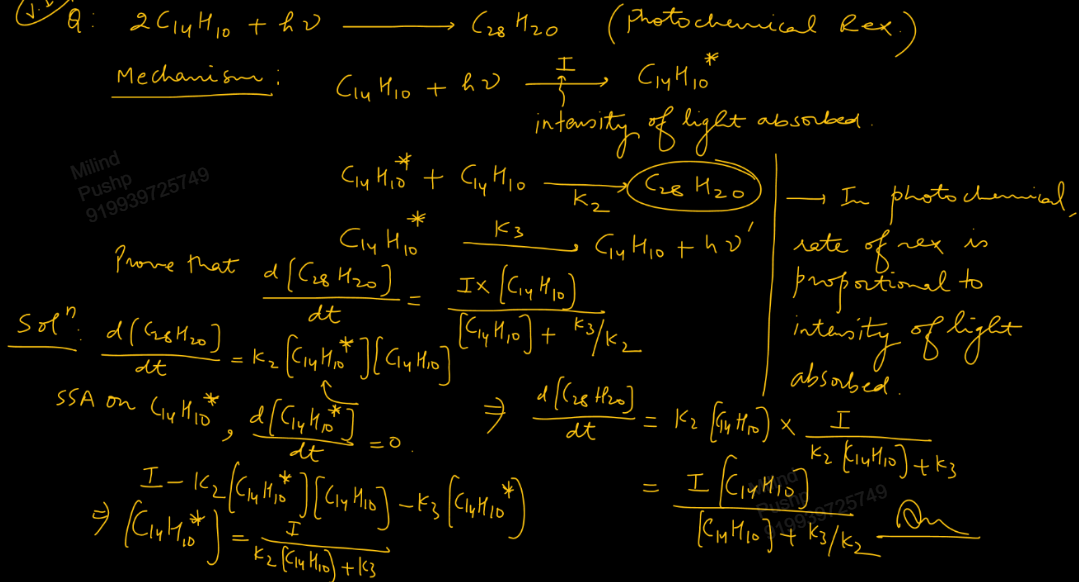 Q: 2C₁₄H₁₀ + hν ⟶ C₂₈H₂₀ (Photochemical Rex.)
Mechanism: C₁₄H₁₀ + hν ⟶ C₁₄H₁₀*
I
intensity of light absorbed.
C₁₄H₁₀* + C₁₄H₁₀ ⟶ C₂₈H₂₀
K₂
C₁₄H₁₀* ⟶ C₁₄H₁₀ + hν'
K₃
→ In photochemical,
rate of rex is
proportional to
intensity of light
absorbed.
Prove that d[C₂₈H₂₀]/dt = I×[C₁₄H₁₀]/[C₁₄H₁₀] + K₃/K₂
Solⁿ: d[C₂₈H₂₀]/dt = K₂[C₁₄H₁₀*][C₁₄H₁₀]
SSA on C₁₄H₁₀*, d[C₁₄H₁₀*]/dt = 0.
I − K₂[C₁₄H₁₀*][C₁₄H₁₀] − K₃[C₁₄H₁₀*]
⇒ [C₁₄H₁₀*] = I/K₂[C₁₄H₁₀] + K₃
⇒ d[C₂₈H₂₀]/dt = K₂[C₁₄H₁₀] × I/K₂[C₁₄H₁₀] + K₃
= I[C₁₄H₁₀]/[C₁₄H₁₀] + K₃/K₂
Milind
Pushp
919939725749
Milind
Pushp
919939725749